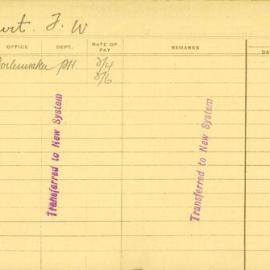 F. W
OFFICE DEPT. RATE OF PAY REMARKS DA
Boilermaker PH. 5/4
5/6
Transferred to New System
Transferred to New System